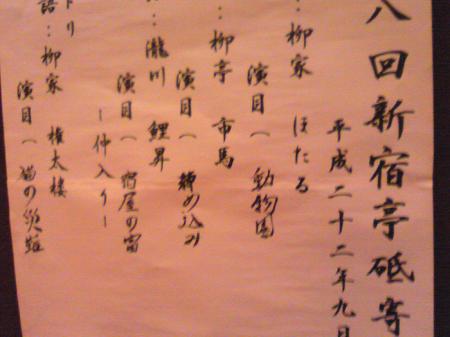 八回新宿亭砥寄
平成二十二年九月
：柳家 ほたる
演目（ 動物園
：柳亭 市馬
演目（ 締め込み
：瀧川 鯉昇
演目（ 宿屋の富
－仲入り－
トリ
語：柳家 権太楼
演目（ 猫の災難